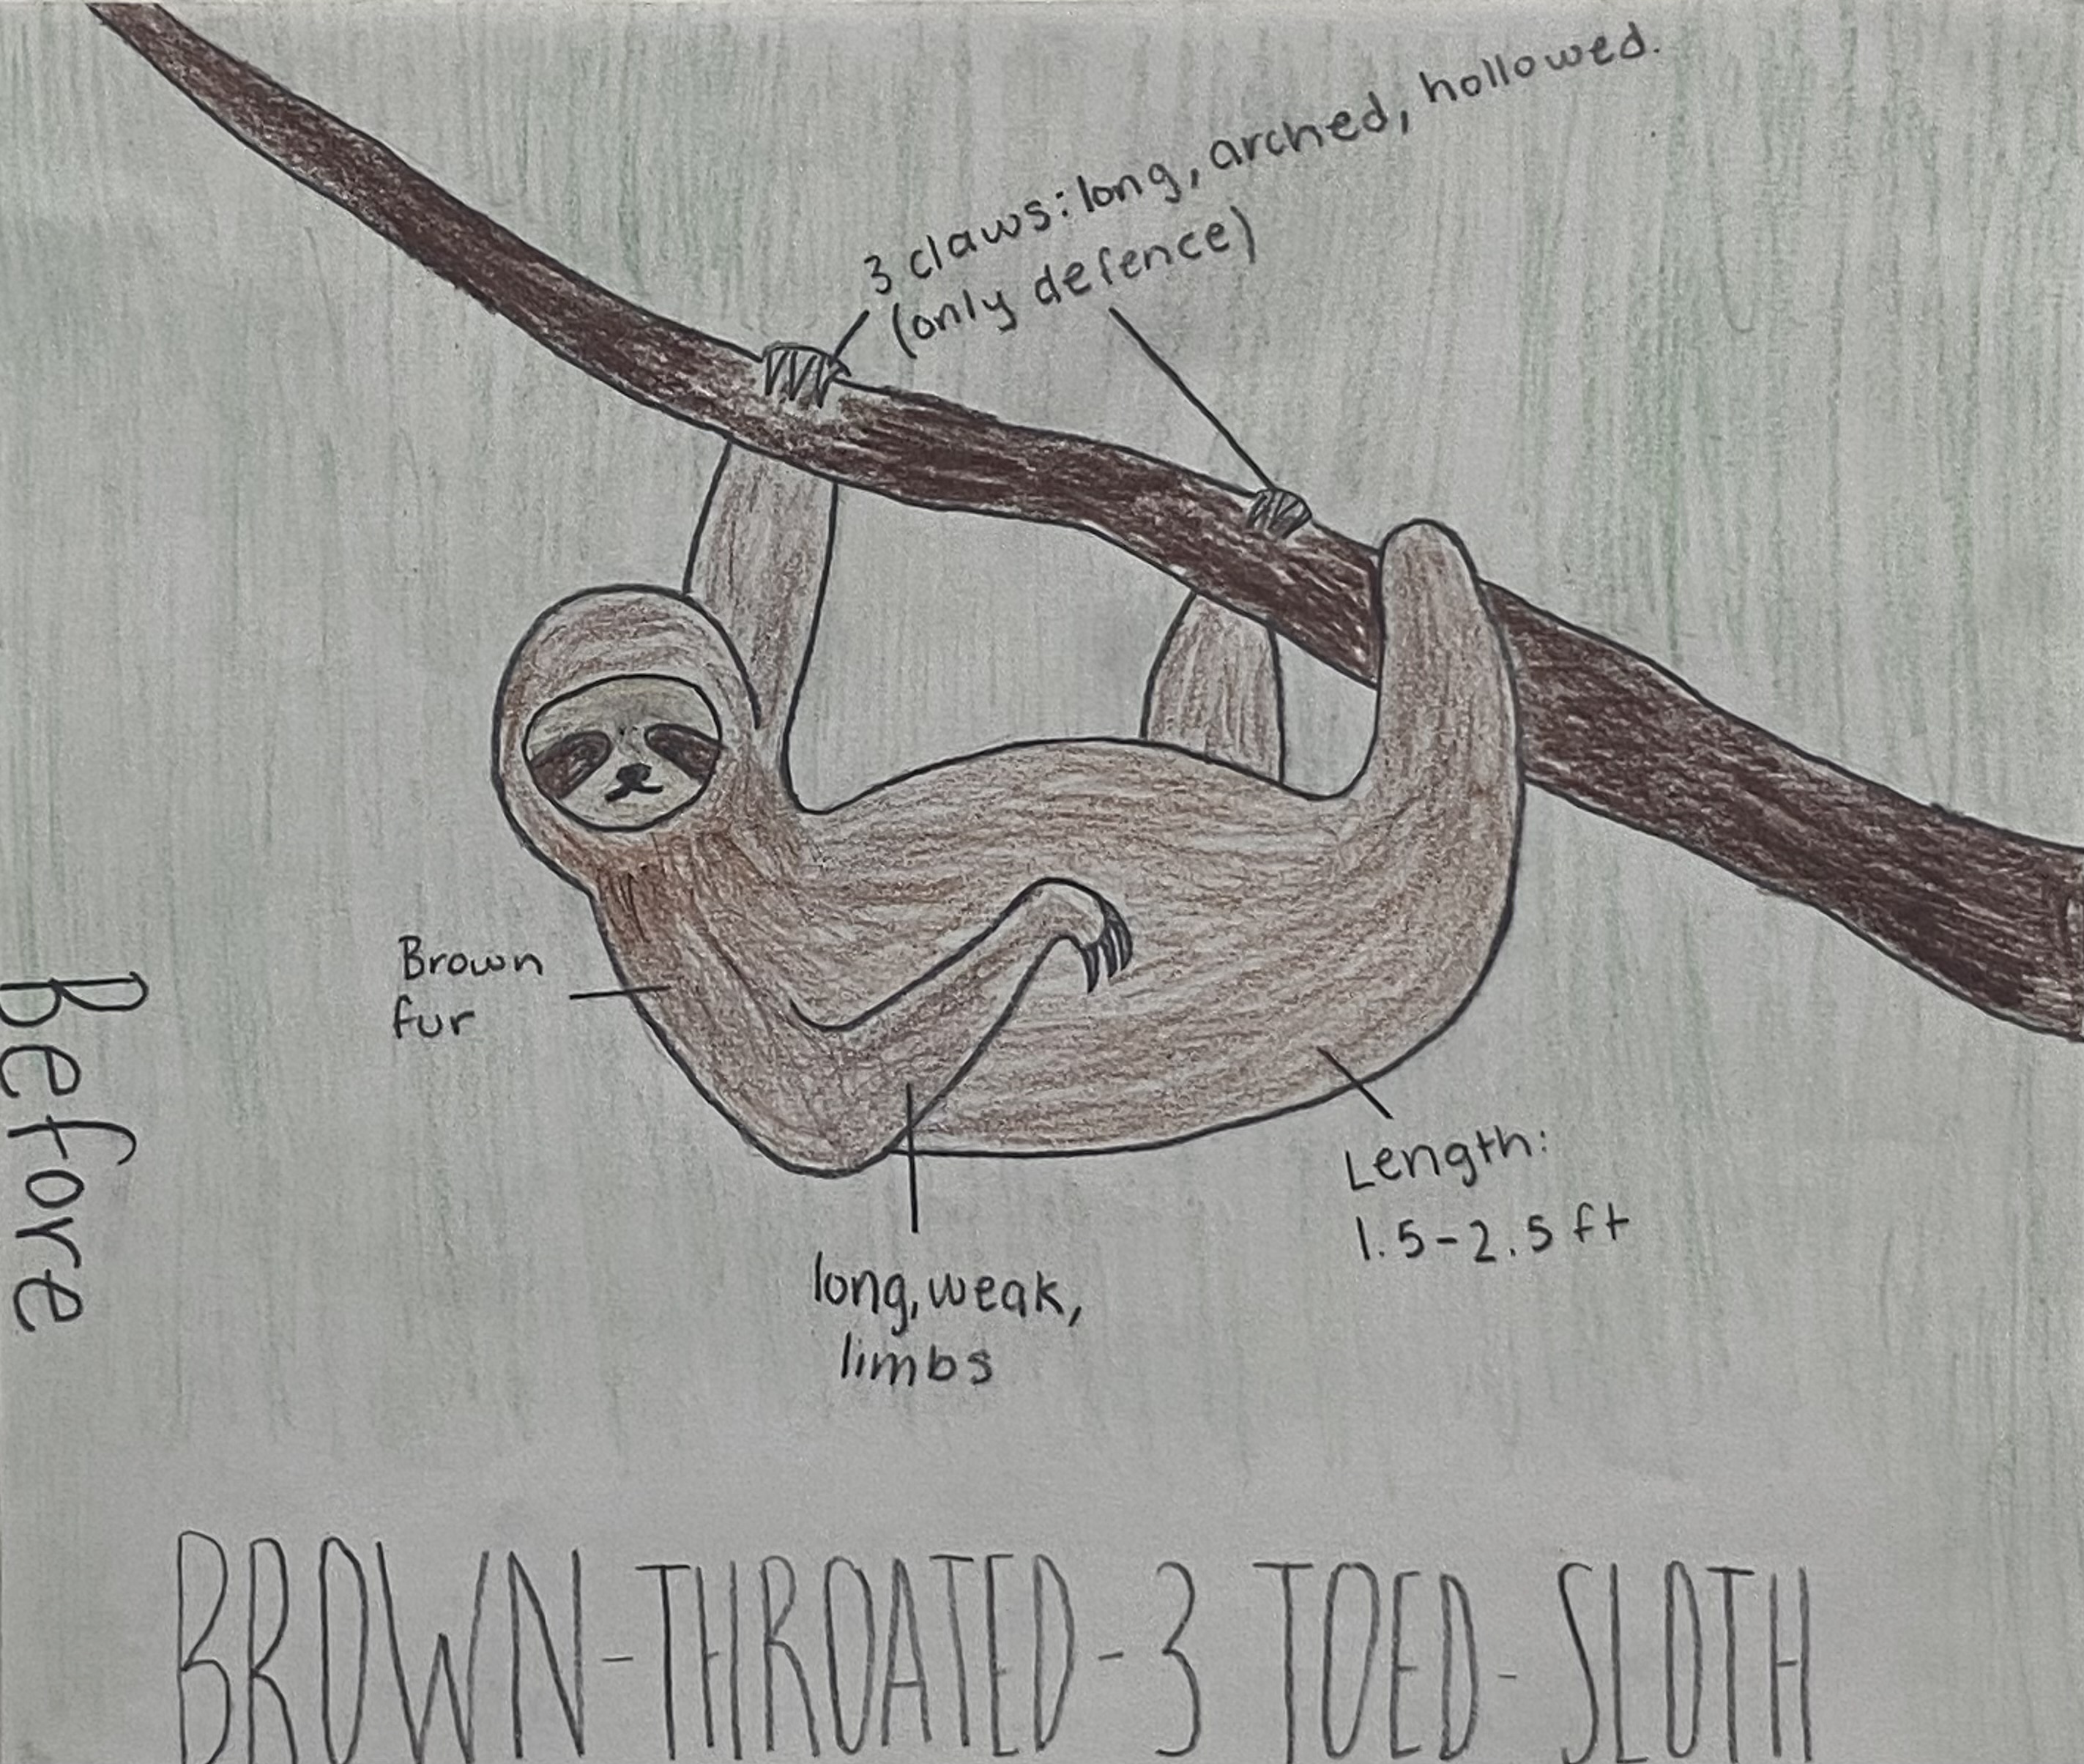 3 claws: long, arched, hollowed.
(only defence)
Brown
fur
Before
Length:
1.5-2.5 ft
long, weak,
limbs
BROWN-THROATED-3 TOED-SLOTH